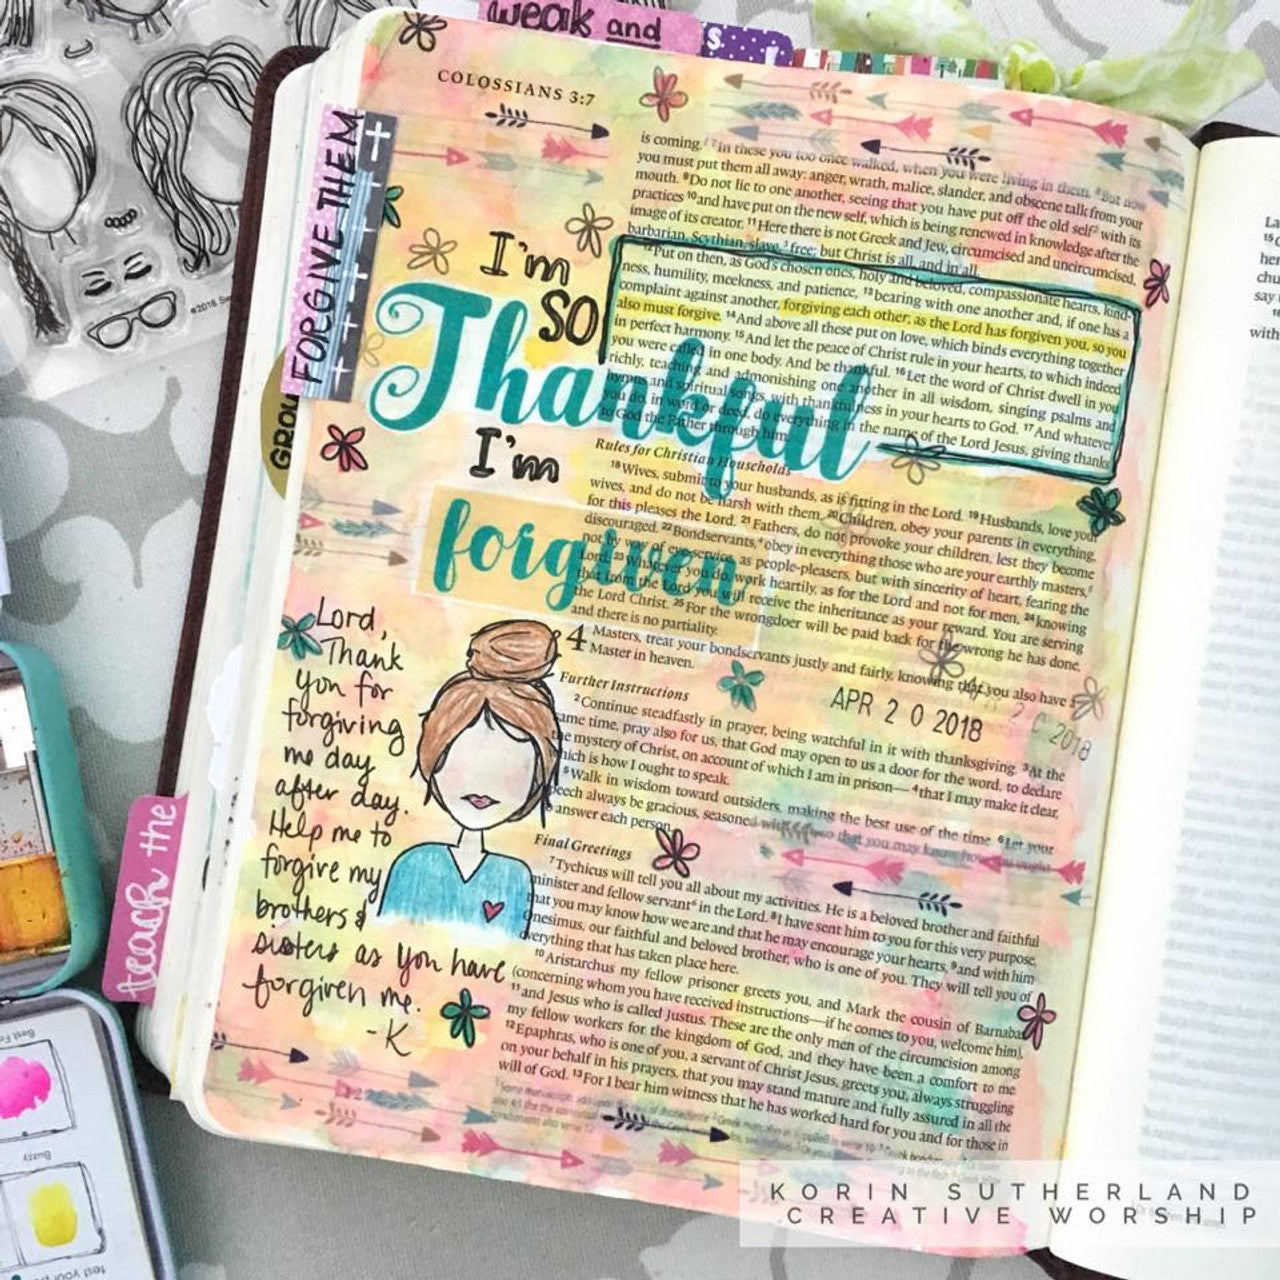 weak and
COLOSSIANS 3:7
FORGIVE THEM
is coming. ⁷In these you too once walked, when you were living in them. ⁸But now
you must put them all away: anger, wrath, malice, slander, and obscene talk from your
mouth. ⁹Do not lie to one another, seeing that you have put off the old self² with its
practices ¹⁰and have put on the new self, which is being renewed in knowledge after the
image of its creator. ¹¹Here there is not Greek and Jew, circumcised and uncircumcised,
barbarian, Scythian, slave,³ free; but Christ is all, and in all.
¹²Put on then, as God's chosen ones, holy and beloved, compassionate hearts, kind-
ness, humility, meekness, and patience, ¹³bearing with one another and, if one has a
complaint against another, forgiving each other; as the Lord has forgiven you, so you
also must forgive. ¹⁴And above all these put on love, which binds everything together
in perfect harmony. ¹⁵And let the peace of Christ rule in your hearts, to which indeed
you were called in one body. And be thankful. ¹⁶Let the word of Christ dwell in you
richly, teaching and admonishing one another in all wisdom, singing psalms and
hymns and spiritual songs, with thankfulness in your hearts to God. ¹⁷And whatever
you do, in word or deed, do everything in the name of the Lord Jesus, giving thanks
to God the Father through him.
I'm
SO
Thankful
I'm
forgiven
Rules for Christian Households
¹⁸Wives, submit to your husbands, as is fitting in the Lord. ¹⁹Husbands, love your
wives, and do not be harsh with them. ²⁰Children, obey your parents in everything,
for this pleases the Lord. ²¹Fathers, do not provoke your children, lest they become
discouraged. ²²Bondservants,⁴ obey in everything those who are your earthly masters,⁵
not by way of eye-service, as people-pleasers, but with sincerity of heart, fearing the
Lord. ²³Whatever you do, work heartily, as for the Lord and not for men, ²⁴knowing
that from the Lord you will receive the inheritance as your reward. You are serving
the Lord Christ. ²⁵For the wrongdoer will be paid back for the wrong he has done,
and there is no partiality.
4 Masters, treat your bondservants justly and fairly, knowing that you also have a
Master in heaven.
APR 20 2018
Further Instructions
²Continue steadfastly in prayer, being watchful in it with thanksgiving. ³At the
ame time, pray also for us, that God may open to us a door for the word, to declare
the mystery of Christ, on account of which I am in prison—⁴that I may make it clear,
which is how I ought to speak.
⁵Walk in wisdom toward outsiders, making the best use of the time. ⁶Let your
peech always be gracious, seasoned with so that you may know how you ought
answer each person.
Final Greetings
⁷Tychicus will tell you all about my activities. He is a beloved brother and faithful
minister and fellow servant⁶ in the Lord. ⁸I have sent him to you for this very purpose,
that you may know how we are and that he may encourage your hearts, ⁹and with him
Onesimus, our faithful and beloved brother, who is one of you. They will tell you of
everything that has taken place here.
¹⁰Aristarchus my fellow prisoner greets you, and Mark the cousin of Barnabas
(concerning whom you have received instructions—if he comes to you, welcome him),
¹¹and Jesus who is called Justus. These are the only men of the circumcision among
my fellow workers for the kingdom of God, and they have been a comfort to me
¹²Epaphras, who is one of you, a servant of Christ Jesus, greets you, always struggling
on your behalf in his prayers, that you may stand mature and fully assured in all the
will of God. ¹³For I bear him witness that he has worked hard for you and for those in
Lord,
Thank
you for
forgiving
me day
after day.
Help me to
forgive my
brothers &
sisters as you have
forgiven me.
-K
teach the
GROU
©2018
Buzzy
test your
KORIN SUTHERLAND
CREATIVE WORSHIP